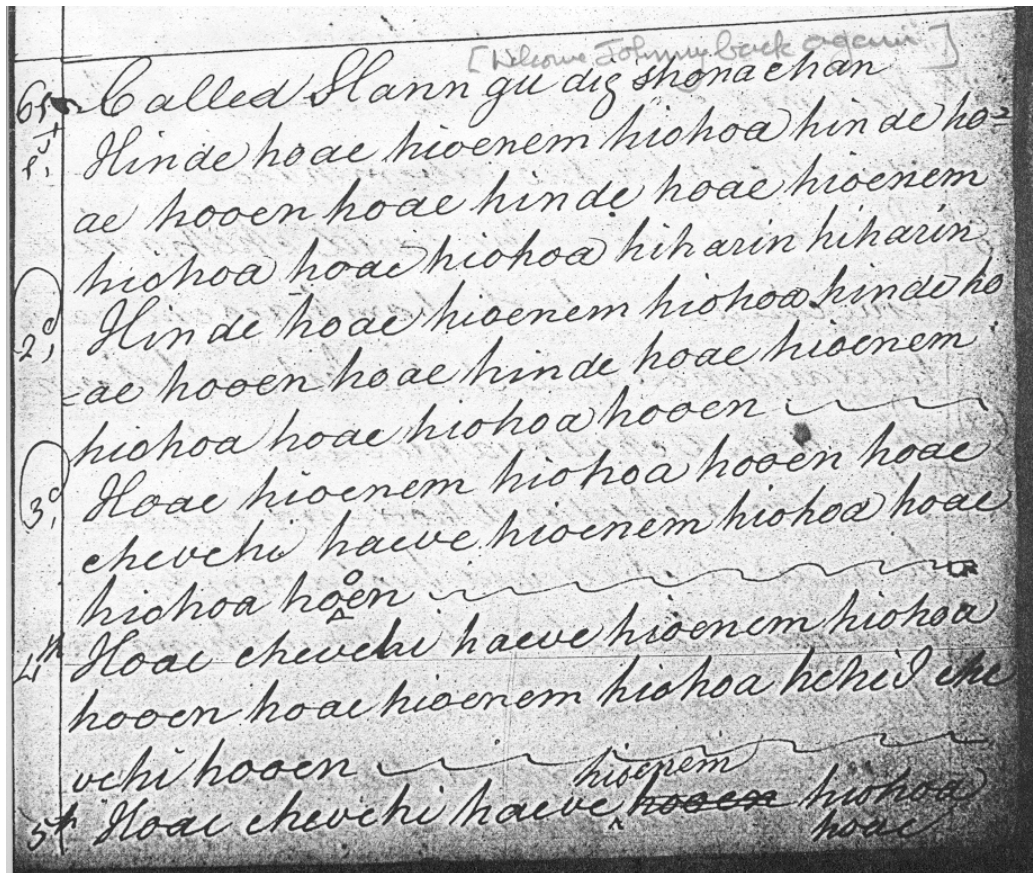 [Welcome Johnny back again]
65 Called Slann gu dig shonachan
1st Hinde hoae hioenem hiohoa hinde ho=
ae hooen hoae hinde hoae hioenem
hiohoa hoae hiohoa hiharin hiharin
2d, Hinde hoae hioenem hiohoa hinde ho
=ae hooen hoae hinde hoae hioenem
hiohoa hoae hiohoa hooen
3d, Hoae hioenem hiohoa hooen hoae
chevehi haeve hioenem hiohoa hoae
hiohoa hooen
4th Hoae chevehi haeve hioenem hiohoa
hooen hoae hioenem hiohoa hihid che
vehi hooen
hioenem
5th Hoae chevehi haeve ^ hooen hiohoa
hoae